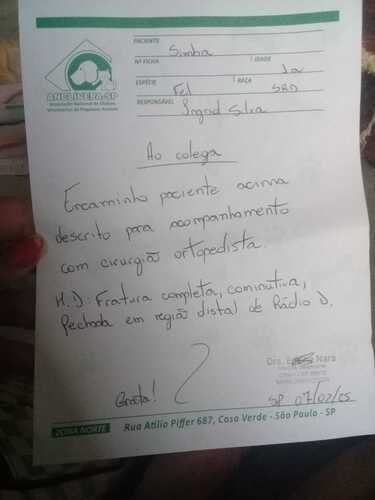 PACIENTE Simba
Nº FICHA IDADE 1a
ESPÉCIE Fel RAÇA SRD
RESPONSÁVEL Ingrid Silva
ANCLIVEPA-SP
Associação Nacional de Clínicos
Veterinários de Pequenos Animais
Ao colega
Encaminho paciente acima
descrito para acompanhamento
com cirurgião ortopedista.
H.D: Fratura completa, cominutiva,
fechada em região distal de Rádio D.
Dra. Nara
Grata!
SP 07/02/25
ZONA NORTE Rua Atílio Piffer 687, Casa Verde - São Paulo - SP